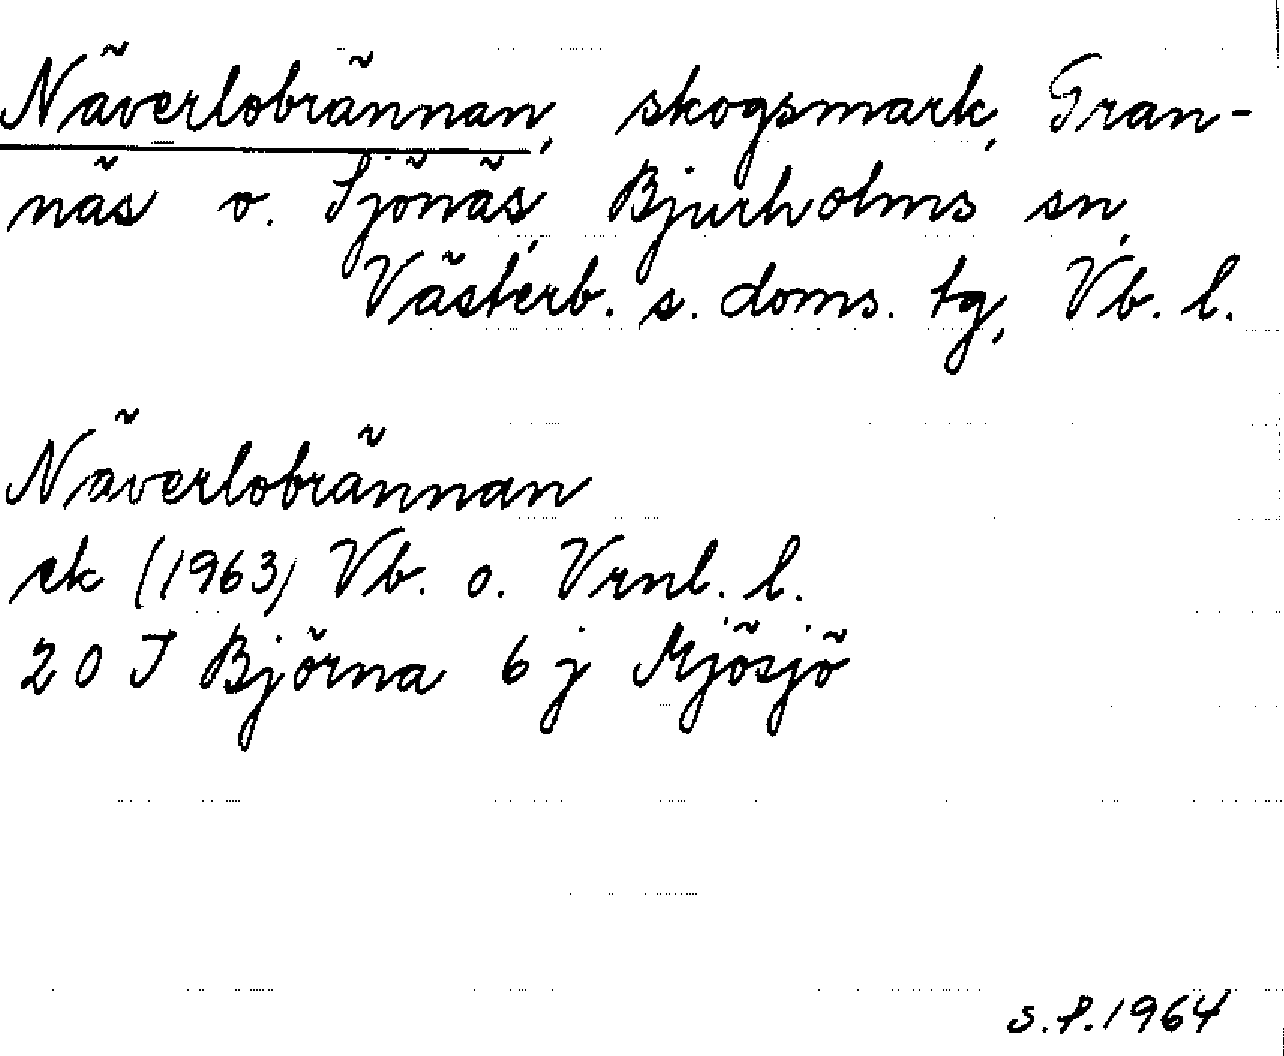 Näverlobrännan, skogsmark, Gran-
näs o. Sjönäs, Bjurholms sn,
Västerb. s. doms. tg, Vb. l.
Näverlobrännan
ek (1963) Vb. o. Vrnl. l.
20 J Björna 6 j Mjösjö
s.P.1964